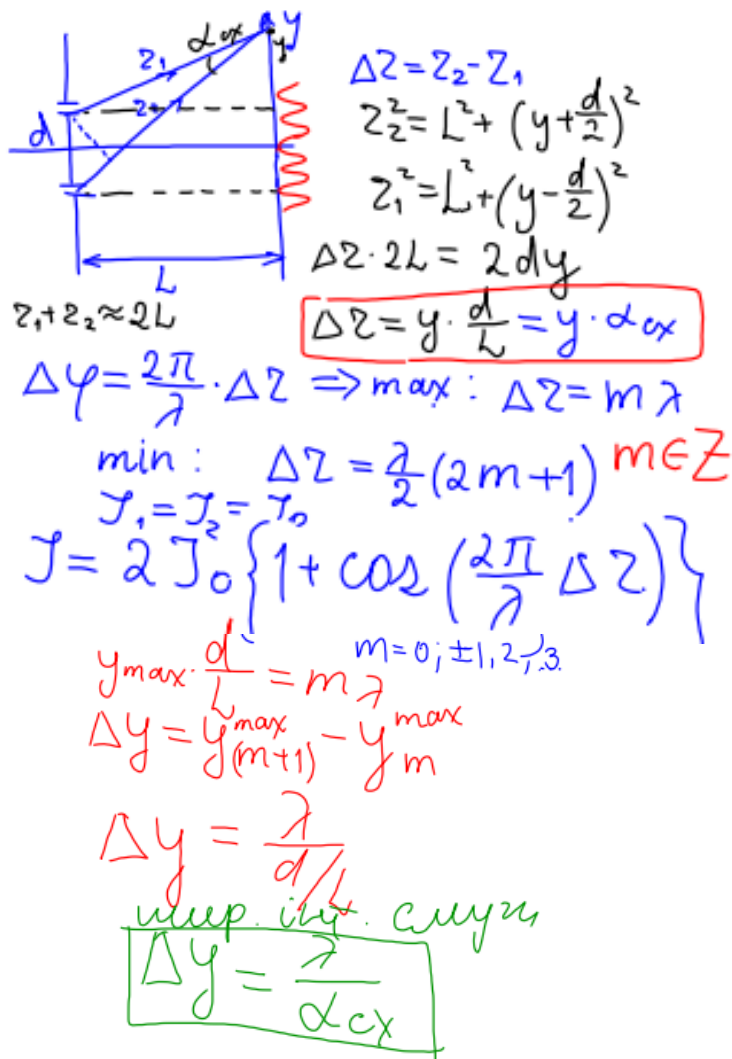 y
α сх
y
r₁
r₂
d
L
Δr = r₂ - r₁
r₂² = L² + (y + d/2)²
r₁² = L² + (y - d/2)²
Δr · 2L = 2dy
r₁ + r₂ ≈ 2L
Δr = y · d/L = y · α сх
Δφ = 2π/λ · Δr ⇒ max : Δr = mλ
min : Δr = λ/2 (2m+1) m ∈ Z
J₁ = J₂ = J₀
J = 2J₀ {1 + cos (2π/λ Δr)}
m = 0; ±1, 2, 3.
y max · d/L = mλ
Δy = y max (m+1) - y max m
Δy = λ / (d/L)
шир. інт. смуги
Δy = λ / α сх